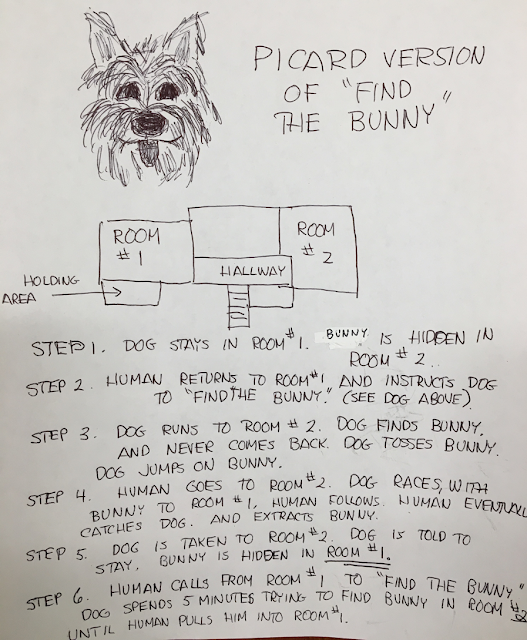 PICARD VERSION
OF "FIND
THE BUNNY"
ROOM
#1
ROOM
#2
HALLWAY
HOLDING
AREA
STEP 1. DOG STAYS IN ROOM #1. BUNNY IS HIDDEN IN
ROOM #2..
STEP 2. HUMAN RETURNS TO ROOM #1 AND INSTRUCTS DOG
TO "FIND THE BUNNY." (SEE DOG ABOVE).
STEP 3. DOG RUNS TO ROOM #2. DOG FINDS BUNNY,
AND NEVER COMES BACK. DOG TOSSES BUNNY.
DOG JUMPS ON BUNNY.
STEP 4. HUMAN GOES TO ROOM #2. DOG RACES, WITH
BUNNY TO ROOM #1, HUMAN FOLLOWS. HUMAN EVENTUALL
CATCHES DOG. AND EXTRACTS BUNNY.
STEP 5. DOG IS TAKEN TO ROOM #2. DOG IS TOLD TO
STAY. BUNNY IS HIDDEN IN ROOM #1.
STEP 6. HUMAN CALLS FROM ROOM #1 TO "FIND THE BUNNY"
DOG SPENDS 5 MINUTES TRYING TO FIND BUNNY IN ROOM #2
UNTIL HUMAN PULLS HIM INTO ROOM #1.